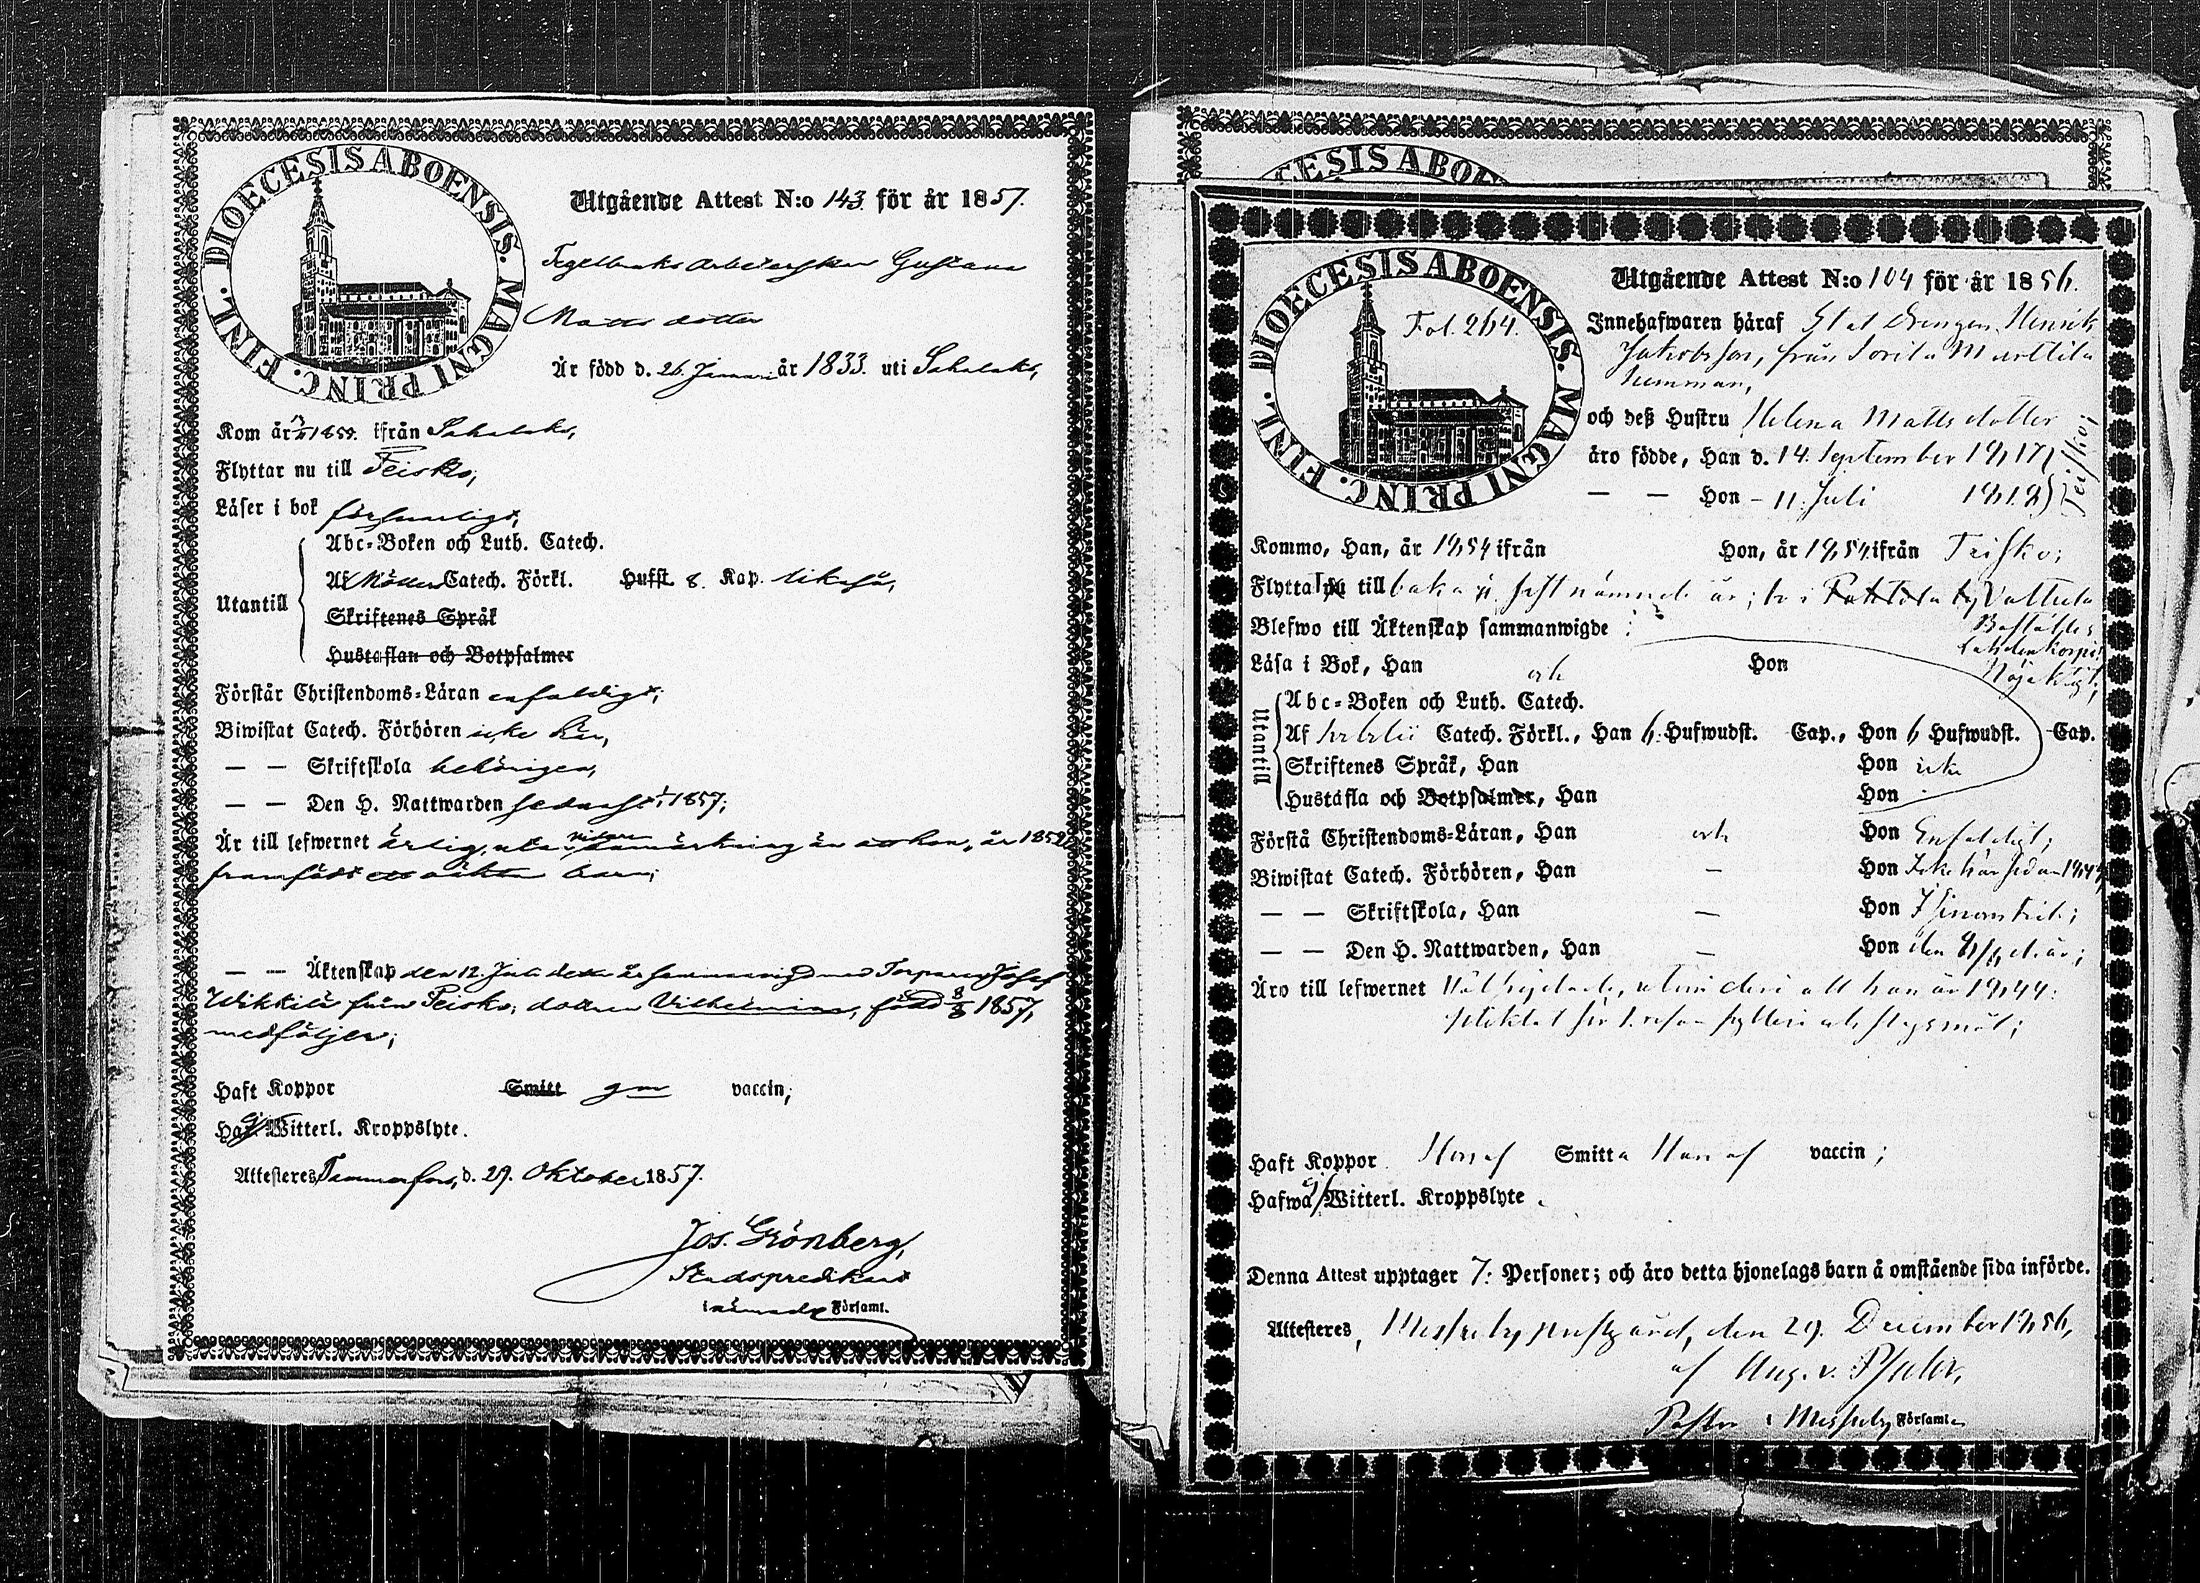 DIOECESIS ABOENSIS. MAGNI PRINC. FINL.
Utgående Attest N:o 143. för år 1857.
Tegelbruks Gustava
Matts dotter
Är född d. 26. Januari år 1833. uti Sahalaks,
Kom år ifrån Sahalaks,
Flyttar nu till Teisko,
Läser i bok försvarligt,
Utantill
Abc-Boken och Luth. Catech.
Af Möllers Catech. Förkl. Hufst. 8. Kap. likaså,
Skriftenes Språk
Hustaflan och Botpsalmer
Förstår Christendoms-Läran enfaldigt;
Biwistat Catech. Förhören icke här,
— — Skriftskola behörigen,
— — Den H. Nattwarden sednast 1857;
Är till lefwernet ärlig, utan vidare anmärkning än att hon, år 1852
framfödt ett oäkta barn;
— — Äktenskap den 12. Juli detta år sammanvigd med Torparen Josef
Wikkilä från Teisko; dottren Vilhelmina, född 1857,
medföljer;
Haft Koppor Smitt gm vaccin;
Haft ej Witterl. Kroppslyte.
Attesteres Tammerfors, d. 29. Oktober 1857.
Jos. Grönberg,
Stadspredikant
i nämnde Församl.
DIOECESIS ABOENSIS
DIOECESIS ABOENSIS. MAGNI PRINC. FINL.
Fol. 264.
Utgående Attest N:o 104 för år 1856.
Innehafwaren häraf Stat Drengen Henrik
Jakobsson, från Sorila Marttila
hemman,
och deß Hustru Helena Matts dotter
äro födde, Han d. 14. September 1817
— — Hon - 11. Juli 1818
Teisko;
Kommo, Han, år 1854 ifrån Hon, år 1854 ifrån Teisko;
Flytta till baka sistnämnde år;
Blefwo till Äktenskap sammanwigde
Läsa i Bok, Han och Hon Nöjaktigt;
Utantill
Abc-Boken och Luth. Catech.
Af Catech. Förkl., Han 6. Hufwudst. Cap., Hon 6 Hufwudst. Cap.
Skriftenes Språk, Han Hon icke
Hustafla och Botpsalmer, Han Hon
Förstå Christendoms-Läran, Han och Hon Enfaldigt;
Biwistat Catech. Förhören, Han — Hon Icke här sedan
— — Skriftskola, Han — Hon
— — Den H. Nattwarden, Han — Hon den
Äro till lefwernet Wälfrejdade, utom det att han år 1844
pliktat för resan fylleri och slagsmål;
Haft Koppor Hon af Smitta Han af vaccin;
Hafwa ej Witterl. Kroppslyte.
Denna Attest upptager 7: Personer; och äro detta hjonelags barn å omstående sida införde.
Attesteres, Messuby prestgård, den 29. December 1856,
af Aug. v. Pfaler,
Pastor i Messuby Församl.